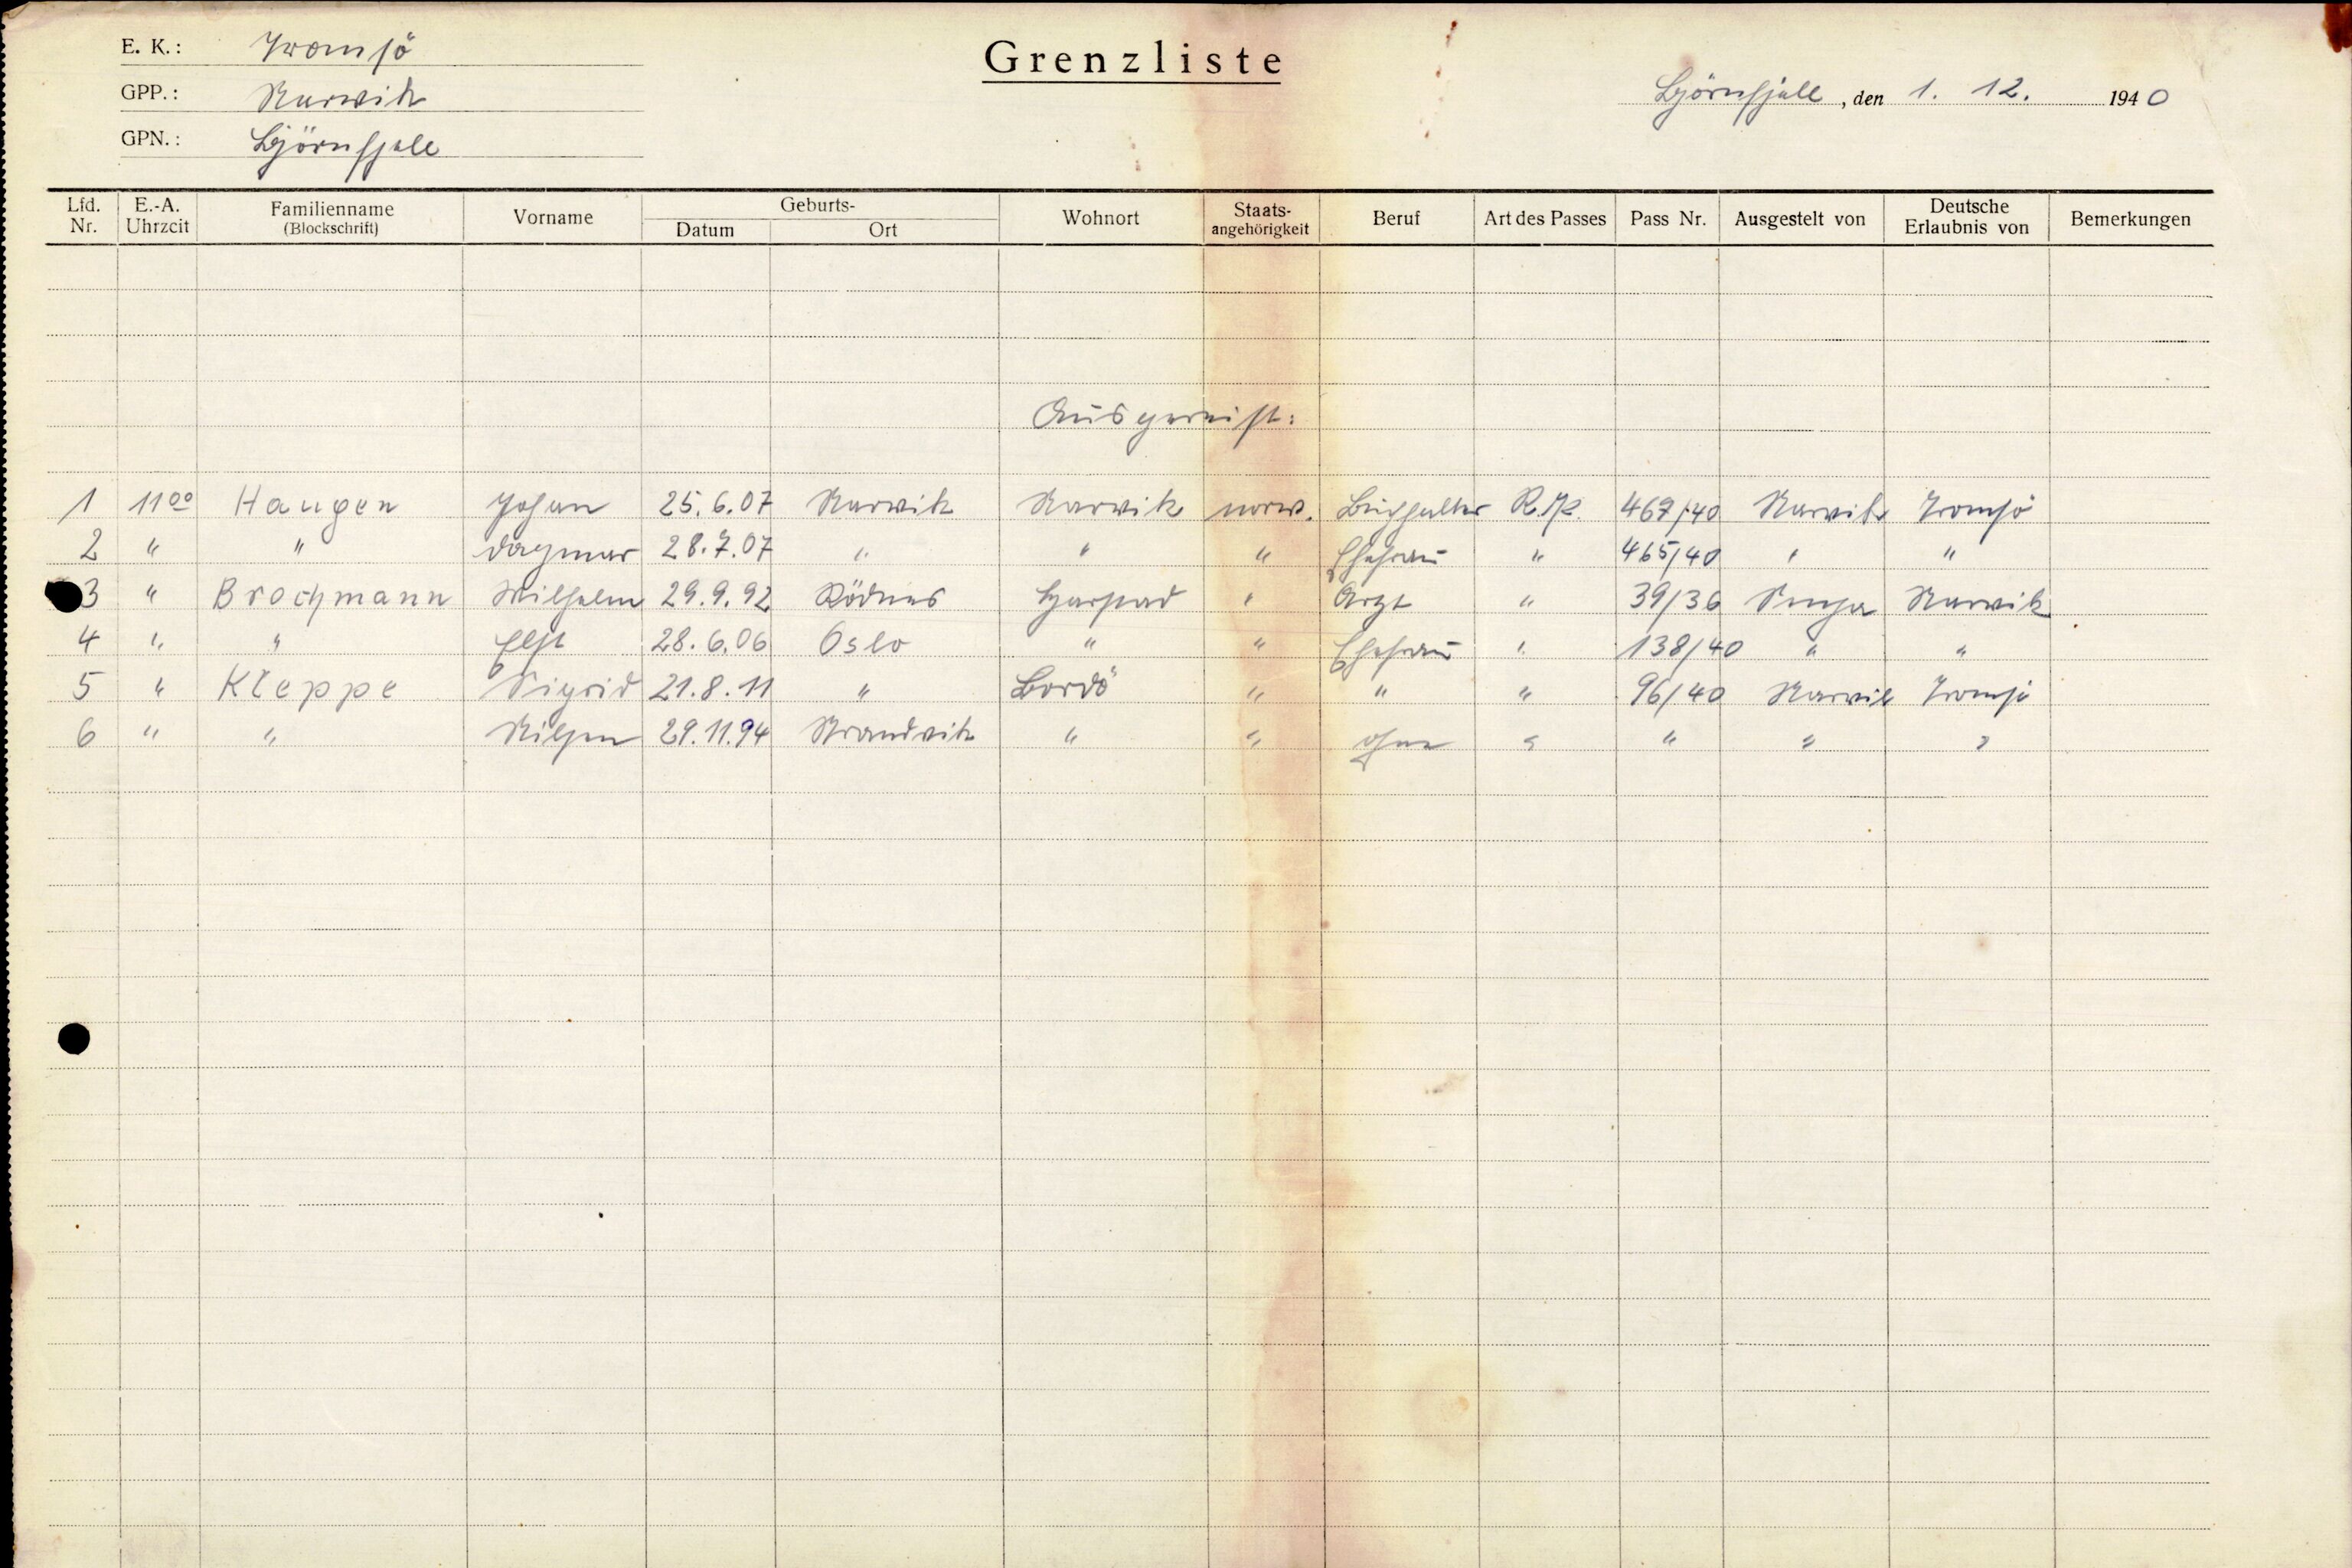 E. K.: Tromsö
GPP.: Narwik
GPN.: Björnfjell
Grenzliste
Björnfjell, den 1. 12. 1940
Lfd. Nr. E.-A. Uhrzeit Familienname (Blockschrift) Vorname Geburts- Datum Ort Wohnort Staats- angehörigkeit Beruf Art des Passes Pass Nr. Ausgestelt von Deutsche Erlaubnis von Bemerkungen
Ausgereist:
1 11⁰⁰ Haugen Johan 25.6.07 Narwik Narwik norw. Buchhalter R.P. 467/40 Narvik Tromsö
2 " " Dagmar 28.7.07 " " " Ehefrau " 465/40 " "
3 " Brochmann Wilhelm 29.9.92 Rödnes Harstad " Arzt " 39/36 Senja Narwik
4 " " 28.6.06 Oslo " " Ehefrau " 138/40 " "
5 " Kleppe Sigrid 21.8.11 " Bordö " " " 96/40 Narvik Tromsö
6 " " Nilsen 29.11.94 Strandvik " " ohne " " " "